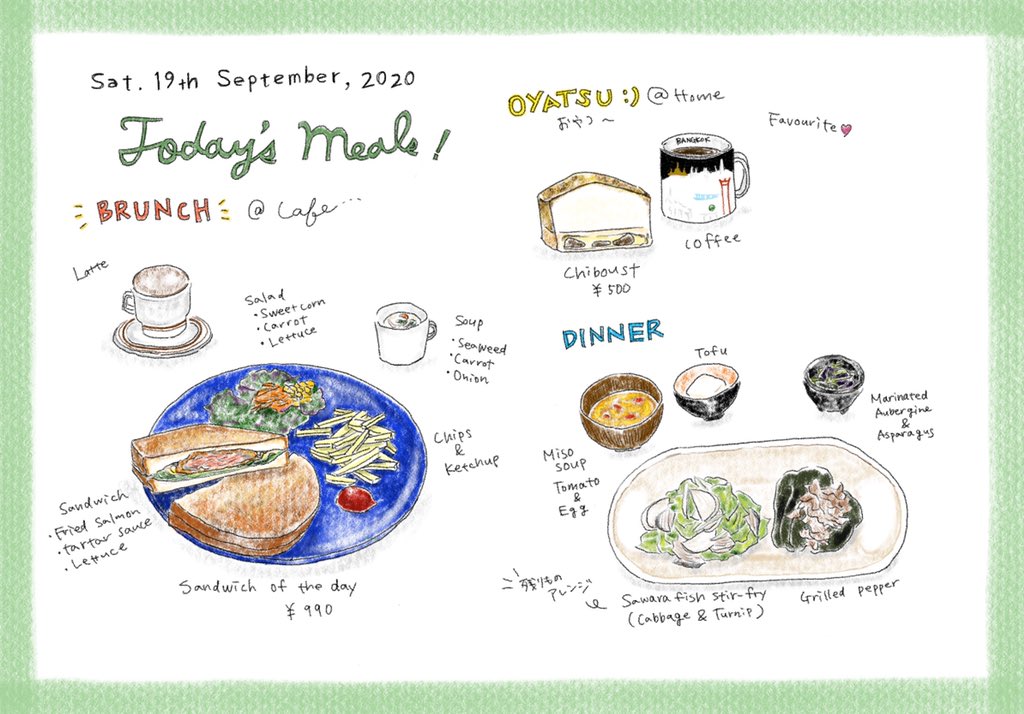 Sat. 19th September, 2020
Today's Meals!
BRUNCH @ Cafe...
Latte
Salad
・Sweetcorn
・Carrot
・Lettuce
Soup
・Seaweed
・Carrot
・Onion
Chips
&
Ketchup
Sandwich
・Fried Salmon
・tartar sauce
・Lettuce
Sandwich of the day
¥990
OYATSU :) @ Home
おやつ〜
Favourite
BANGKOK
coffee
Chiboust
¥500
DINNER
Tofu
Marinated
Aubergine
&
Asparagus
Miso
soup
Tomato
&
Egg
残りもの
アレンジ
Sawara fish stir-fry
(Cabbage & Turnip)
Grilled pepper